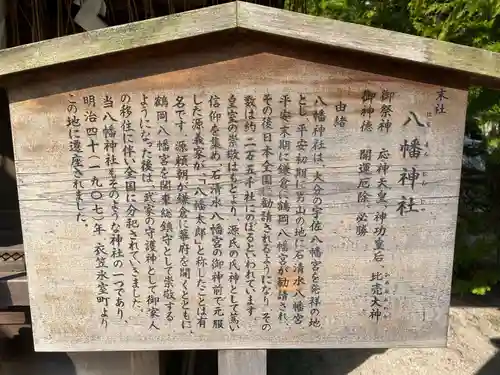 末社
八幡神社
はちまんじんじゃ
御祭神　応神天皇　神功皇后　比売大神
ひめおおかみ
御神徳　開運厄除、必勝
由緒
八幡神社は、大分の宇佐八幡宮を発祥の地
とし、平安初期に男山の地に石清水八幡宮、
平安末期に鎌倉に鶴岡八幡宮が勧請され、
その後日本全国に勧請されるようになり、その
数は約二万五千社にのぼるといわれています。
皇室の崇敬はもとより、源氏の氏神として篤い
信仰を集め、石清水八幡宮の御神前で元服
した源義家が、「八幡太郎」と称したことは有
名です。源頼朝が鎌倉に幕府を開くとともに、
鶴岡八幡宮を関東総鎮守として崇敬する
ようになった後は、武家の守護神として御家人
の移住に伴い全国に分祀されていきました。
当八幡神社もそのような神社の一つであり、
明治四十（一九〇七）年、衣笠氷室町より
この地に遷座されました。